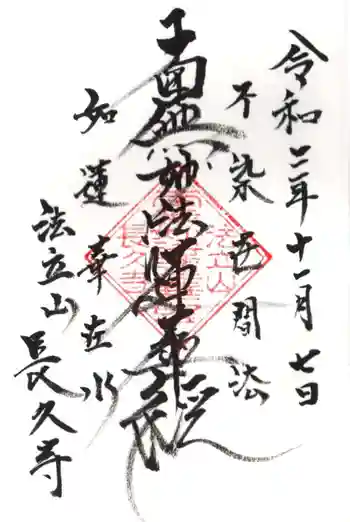 令和三年十一月七日
不染世間法
南無妙法蓮華経
如蓮華在水
法立山
長久寺